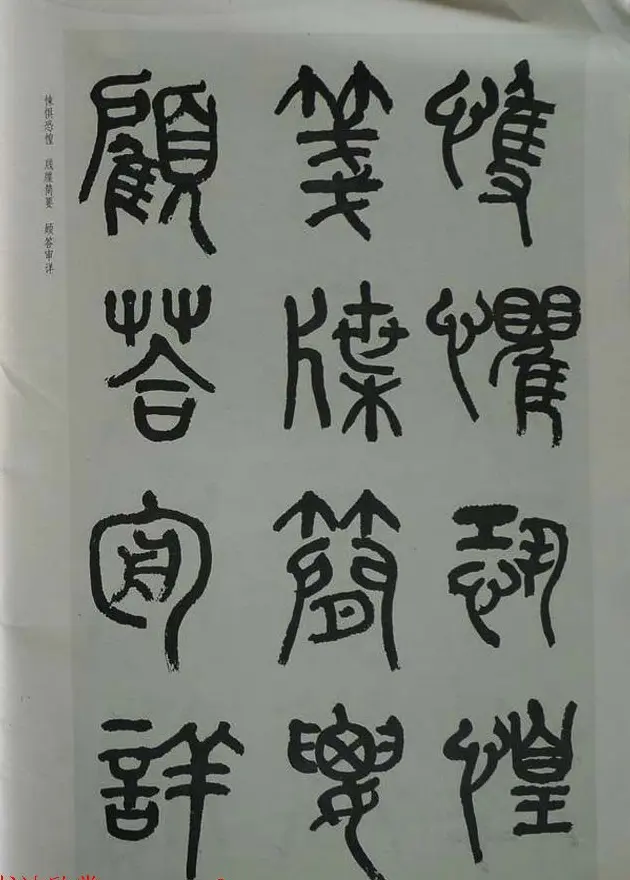 愯懼恐惶
箋牒簡要
顧荅審詳
悚惧恐惶 牒简要 顾答审详